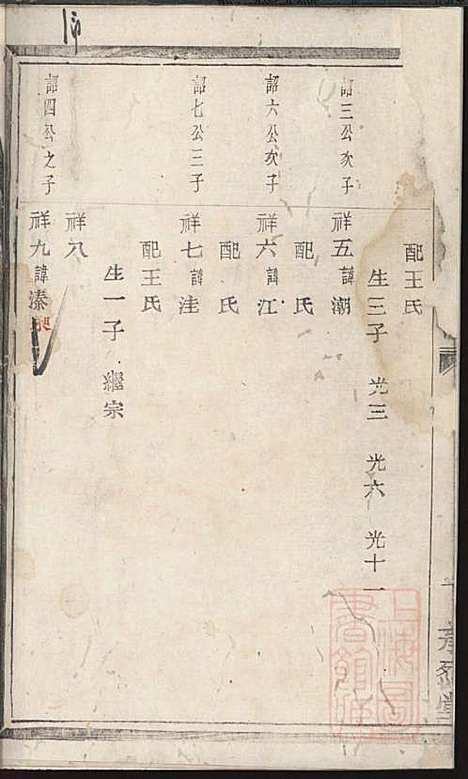 配王氏
生三子 光三 光六 光十一
韶三公次子 祥五諱潮
配 氏
韶六公次子 祥六諱江
配 氏
韶七公三子 祥七諱洼
配王氏
生一子 繼宗
祥八
韶四公之子 祥九諱溱
上海圖書館藏